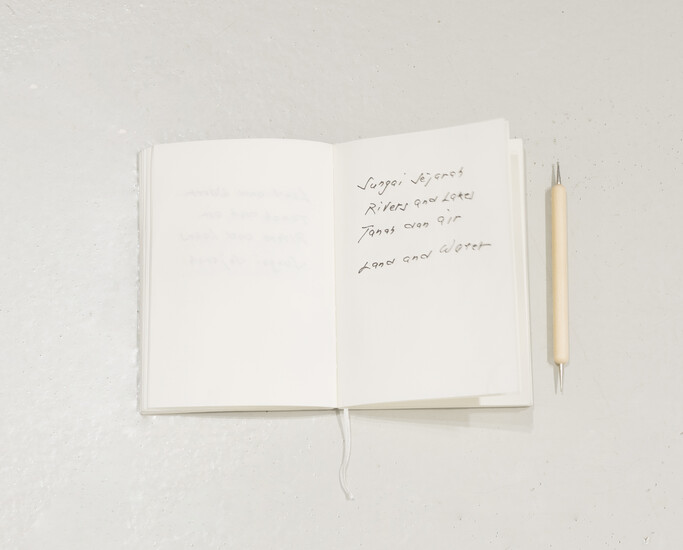 Sungai Sejarah
Rivers and Lakes
Tanah dan air
Land and Water